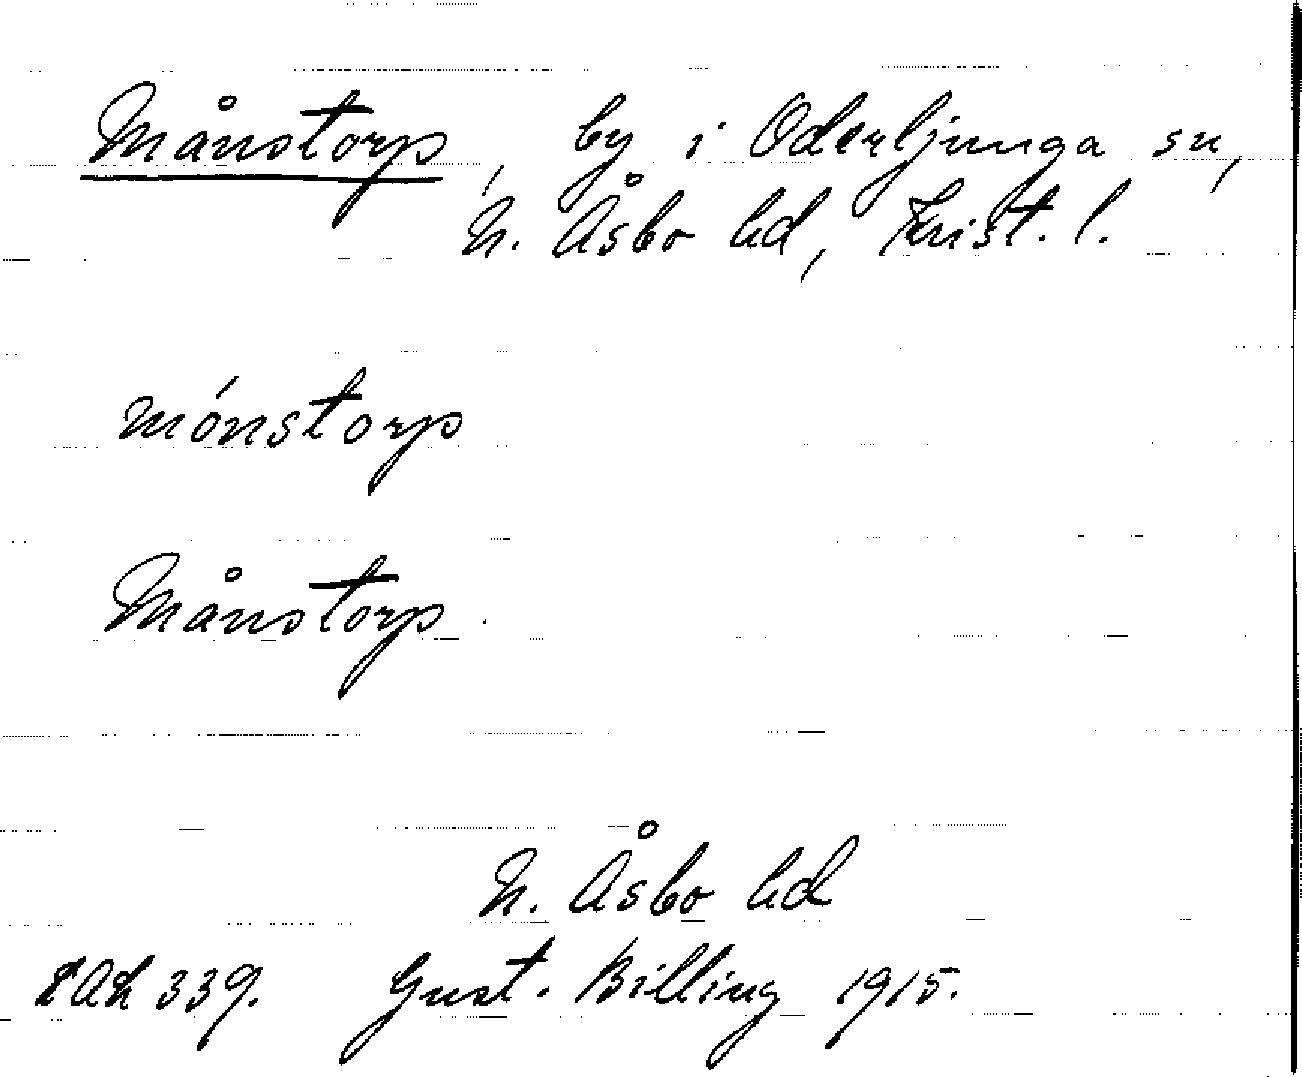 Månstorp, by i Oderljunga sn,
N. Åsbo hd, Krist. l.
mónstorp
Månstorp.
N. Åsbo hd
LAL 339. Gust. Billing 1915.